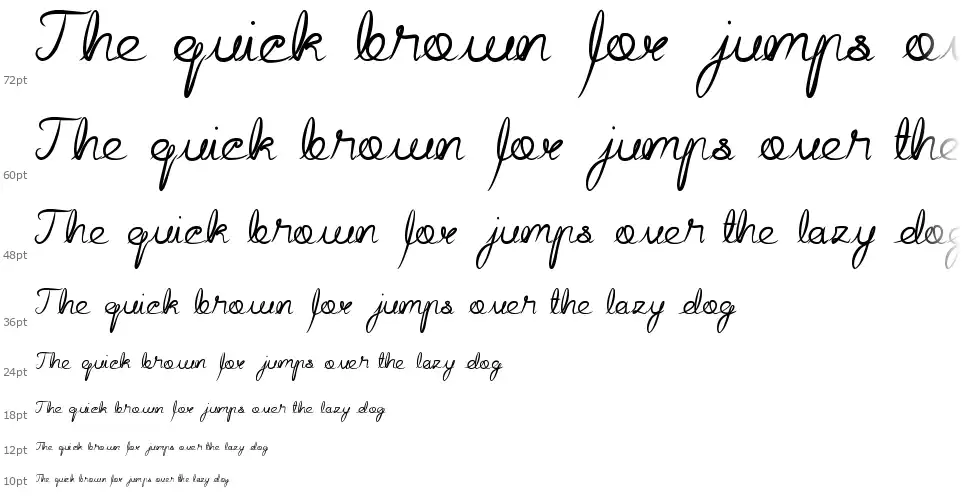 The quick brown fox jumps ov
72pt
The quick brown fox jumps over the
60pt
The quick brown fox jumps over the lazy dog
48pt
The quick brown fox jumps over the lazy dog
36pt
The quick brown fox jumps over the lazy dog
24pt
The quick brown fox jumps over the lazy dog
18pt
The quick brown fox jumps over the lazy dog
12pt
The quick brown fox jumps over the lazy dog
10pt